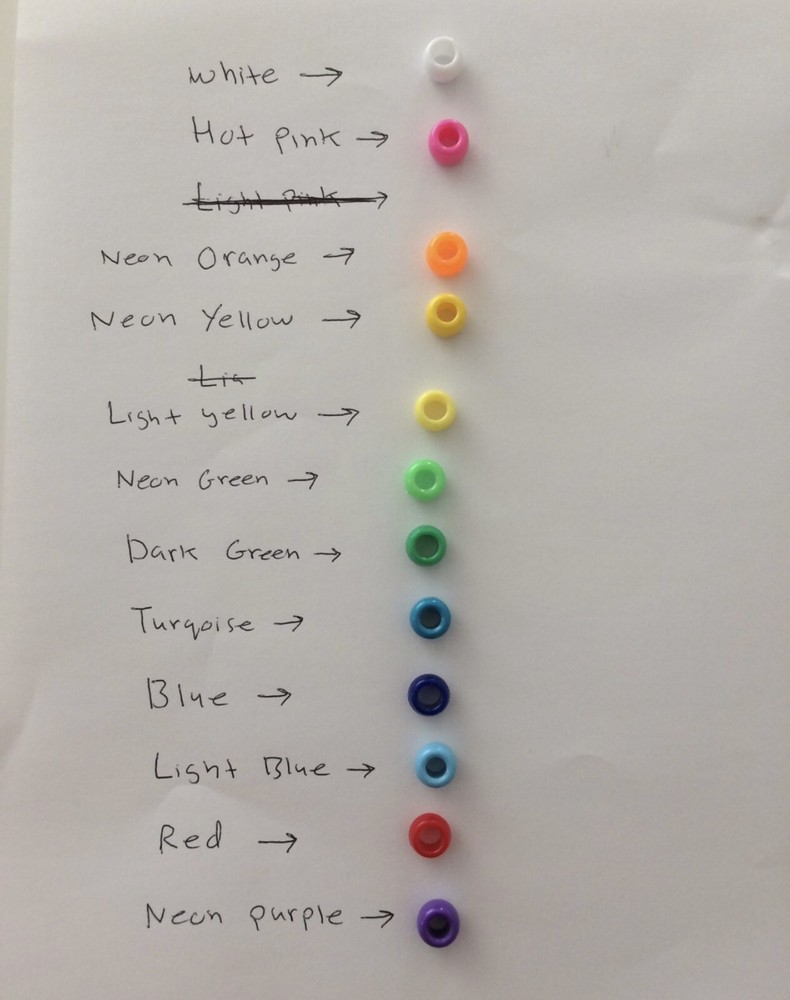 White →
Hot pink →
Light pink →
Neon Orange →
Neon Yellow →
Lig
Light yellow →
Neon Green →
Dark Green →
Turqoise →
Blue →
Light Blue →
Red →
Neon purple →